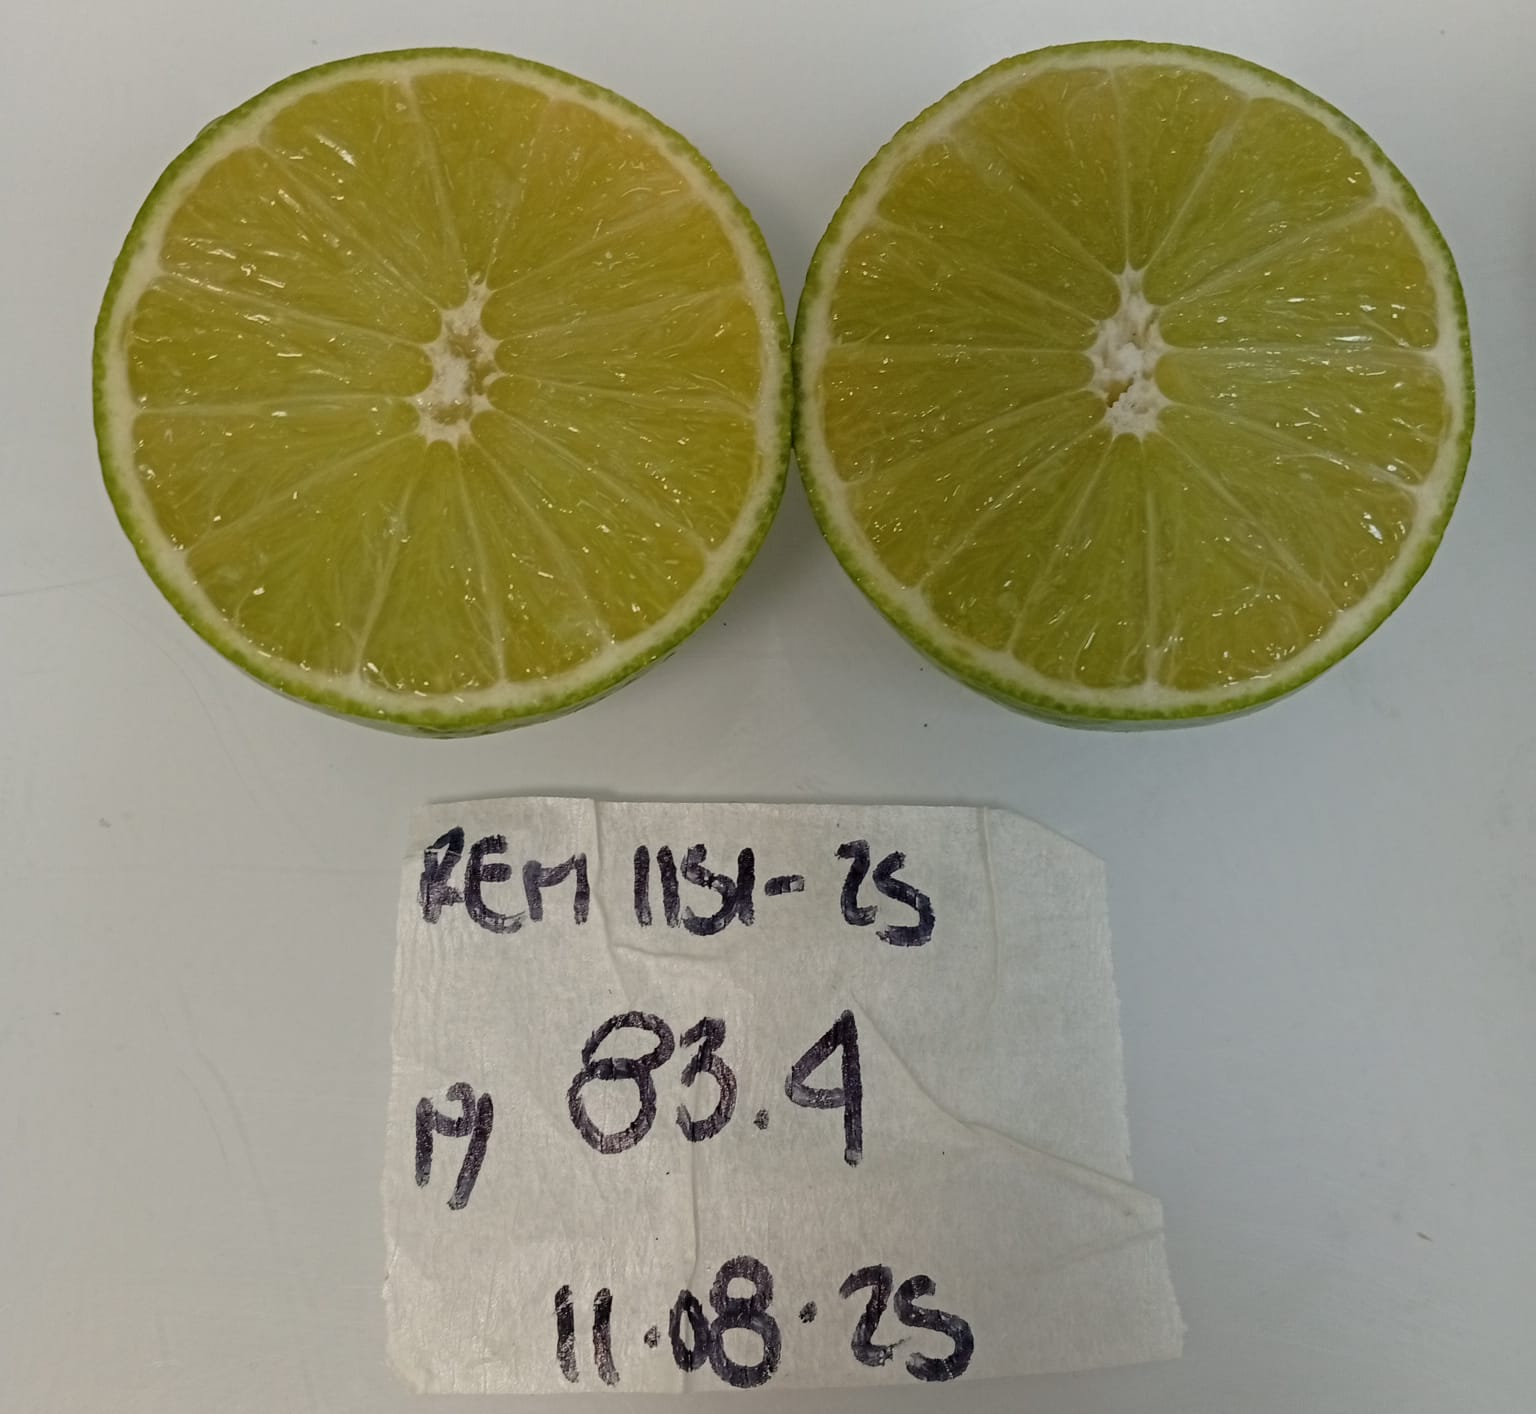 REM 1151-25
83.4
11.08.25